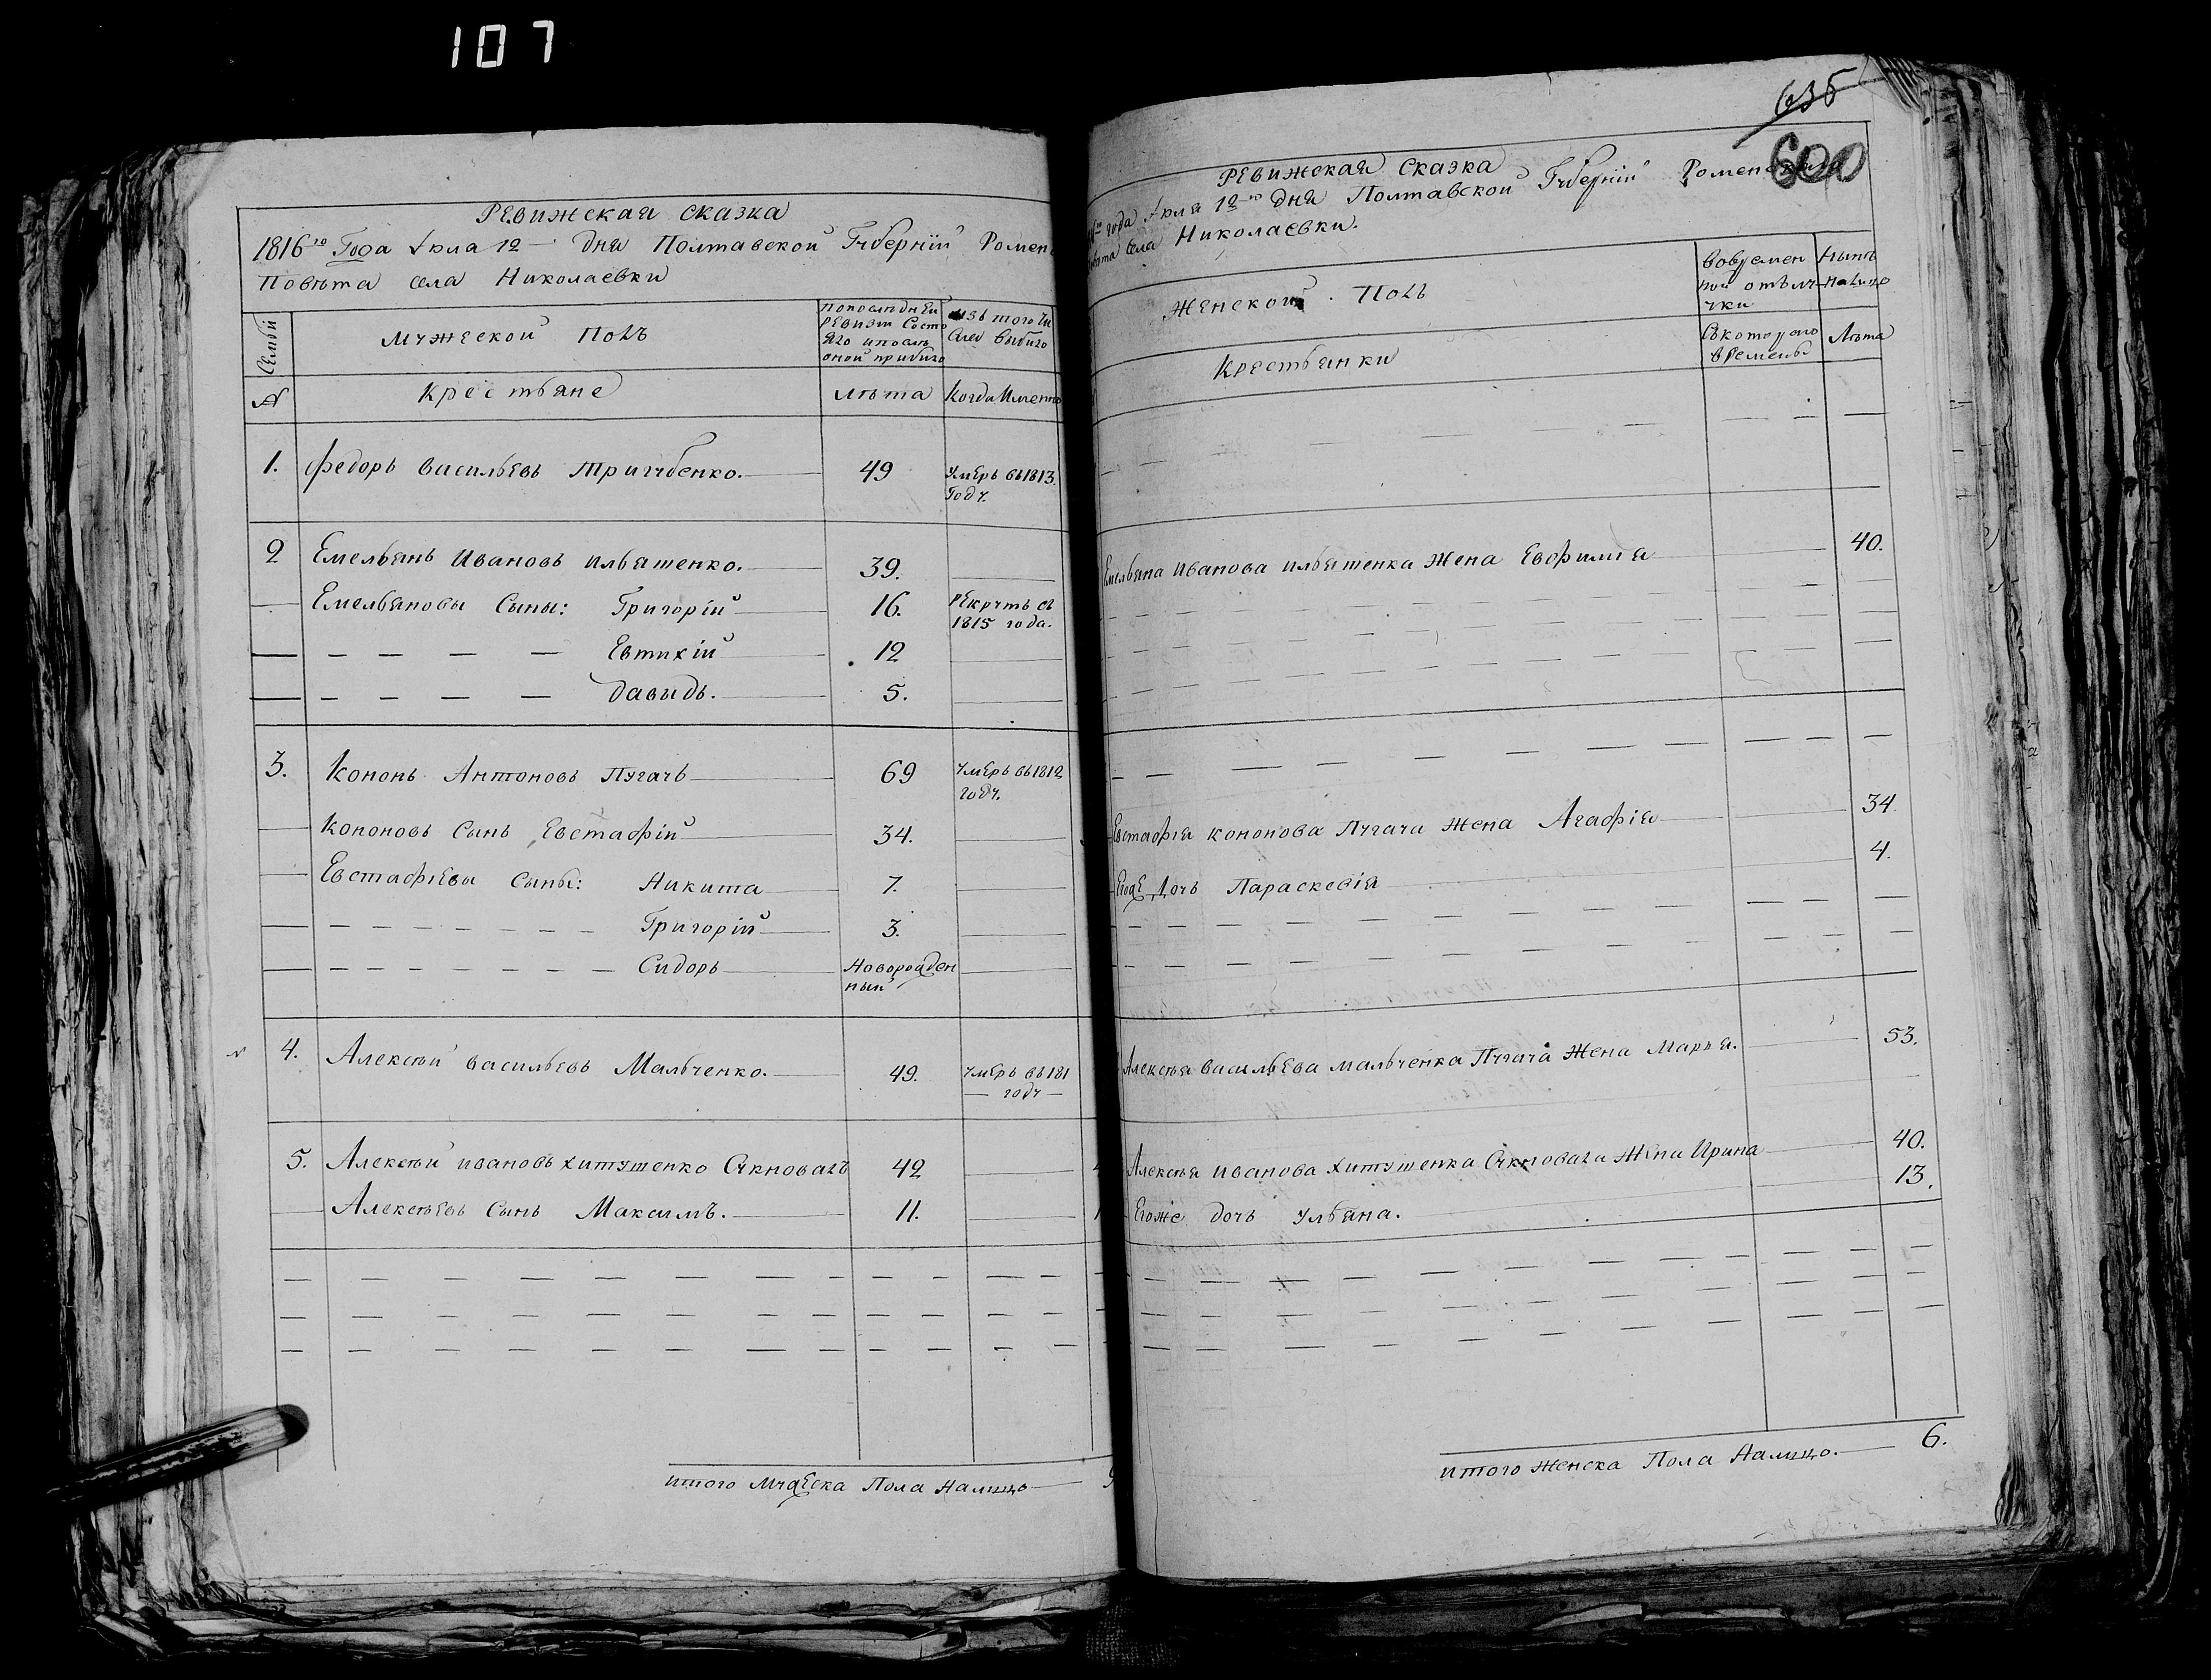 107
Ревижская сказка
1816го Года Iюла 12 Дня Полтавской Губернiи Ромен
Повѣта села Николаевки
Семьи
Мужеской Полъ
попослѣдней
ревизiи Состо
яло и послѣ
оной прибыло
изъ того Чи
сла выбыло
№
Крестьяне
лѣта
Когда Именно
1. Федоръ Васильевъ Тригубенко. 49 Умеръ въ 1813.
Году.
2 Емельянъ Ивановъ Ильяшенко. 39.
Емельяновы Сыны: Григорiй 16. Рекрутъ въ
1815 года.
Евтихiй 12
Давыдъ. 5.
3. Кононъ Антоновъ Пугачь 69 умеръ въ 1812
году.
Кононовъ Сынъ Евстафiй 34.
Евстафiевы Сыны: Никита 7.
Григорiй 3.
Сидоръ Новорожден
ный
4. Алексѣй Васильевъ Мальченко. 49. умеръ въ 181
году
5. Алексѣй Ивановъ Хитушенко Сукновалъ 42
Алексѣевъ Сынъ Максимъ. 11.
итого Мужеска Пола Налицо 9
635
600
Ревижская Сказка
года Iюля 12го Дня Полтавской Губернiи Роменскаго
села Николаевки.
Женской Полъ
вовремен
ной отлу-
чки
Нынѣ
налицо
Крестьянки
Съкотораго
времены
Лѣта
Емельяна Иванова Ильяшенка Жена Евфимiя 40.
Евстафiя Кононова Пугача Жена Агафiя 34.
Егоже Дочь Параскевiя 4.
Алексѣя Васильева Мальченка Пугача Жена Марья. 53.
Алексѣя Иванова Хитушенка Сукновала Жена Ирина 40.
Егоже дочь Ульяна. 13.
итого Женска Пола Налицо. 6.